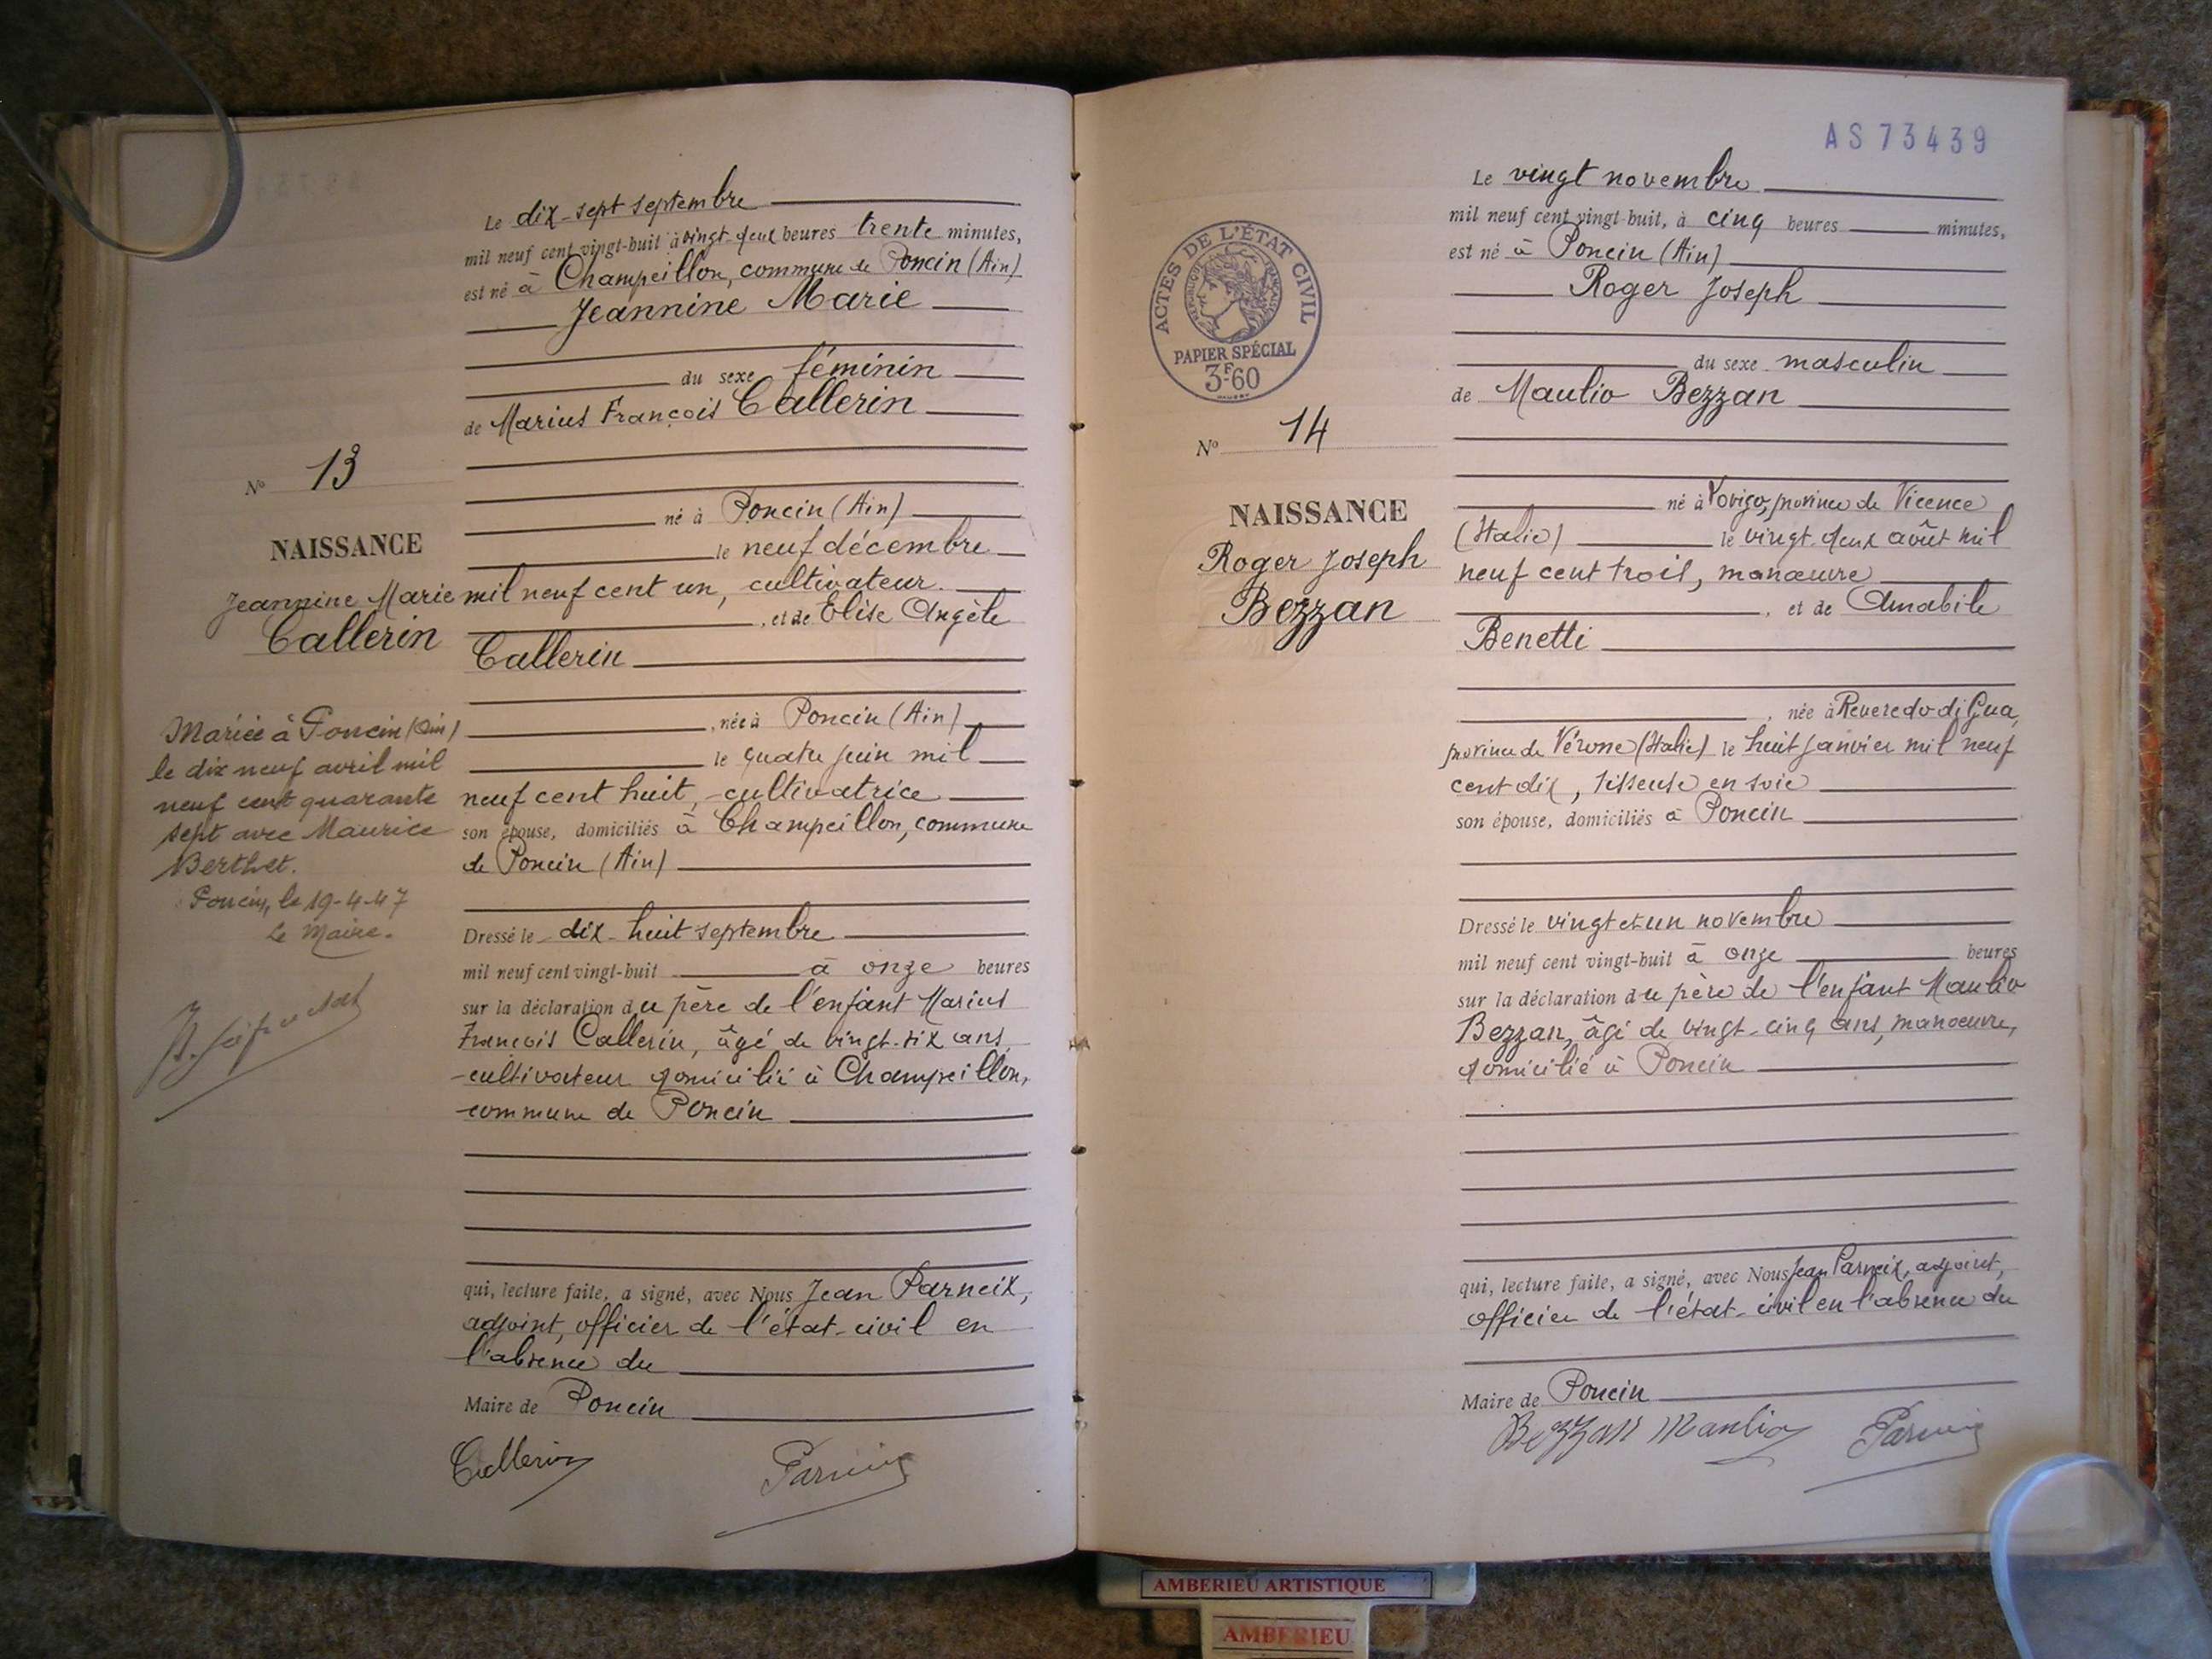 Le dix-sept septembre
mil neuf cent vingt-huit à vingt-deux heures trente minutes,
est né à Champeillon, commune de Poncin (Ain)
Jeannine Marie
du sexe féminin
de Marius François Callerin
né à Poncin (Ain)
le neuf décembre
mil neuf cent un, cultivateur
, et de Elise Angèle
Callerin
, née à Poncin (Ain)
le quatre juin mil
neuf cent huit, cultivatrice
son épouse, domiciliés à Champeillon, commune
de Poncin (Ain)
Dressé le dix-huit septembre
mil neuf cent vingt-huit à onze heures
sur la déclaration du père de l'enfant Marius
François Callerin, âgé de vingt-six ans,
cultivateur domicilié à Champeillon,
commune de Poncin
qui, lecture faite, a signé, avec Nous Jean Parneix,
adjoint, officier de l'état-civil en
l'absence du
Maire de Poncin
Callerin
Parneix
No 13
NAISSANCE
Jeannine Marie
Callerin
Mariée à Poncin (Ain)
le dix neuf avril mil
neuf cent quarante
sept avec Maurice
Berthet.
Poncin, le 19-4-47
Le Maire.
AS 73439
ACTES DE L'ÉTAT CIVIL
RÉPUBLIQUE FRANÇAISE
PAPIER SPÉCIAL
3F60
No 14
NAISSANCE
Roger Joseph
Bezzan
Le vingt novembre
mil neuf cent vingt-huit, à cinq heures minutes,
est né à Poncin (Ain)
Roger Joseph
du sexe masculin
de Maulio Bezzan
né à province de Vicence
(Italie) le vingt-deux août mil
neuf cent trois, manœuvre
, et de Amabile
Benetti
, née à Reveredo di Gua,
province de Vérone (Italie) le huit janvier mil neuf
cent dix, tisseuse en soie
son épouse, domiciliés à Poncin
Dressé le vingt et un novembre
mil neuf cent vingt-huit à onze heures
sur la déclaration du père de l'enfant Maulio
Bezzan, âgé de vingt-cinq ans, manœuvre,
domicilié à Poncin
qui, lecture faite, a signé, avec Nous Jean Parneix, adjoint,
officier de l'état-civil en l'absence du
Maire de Poncin
Bezzan Manlio
Parneix
AMBERIEU ARTISTIQUE
AMBERIEU